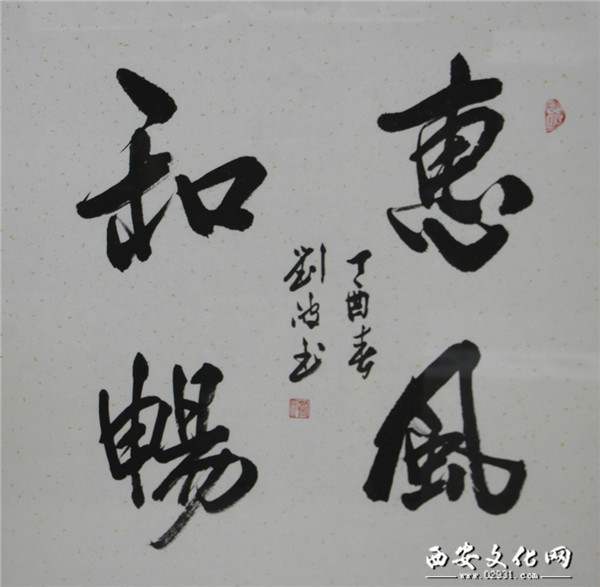 惠風
和暢
丁酉春
劉波书
西安文化网
www.02931.com